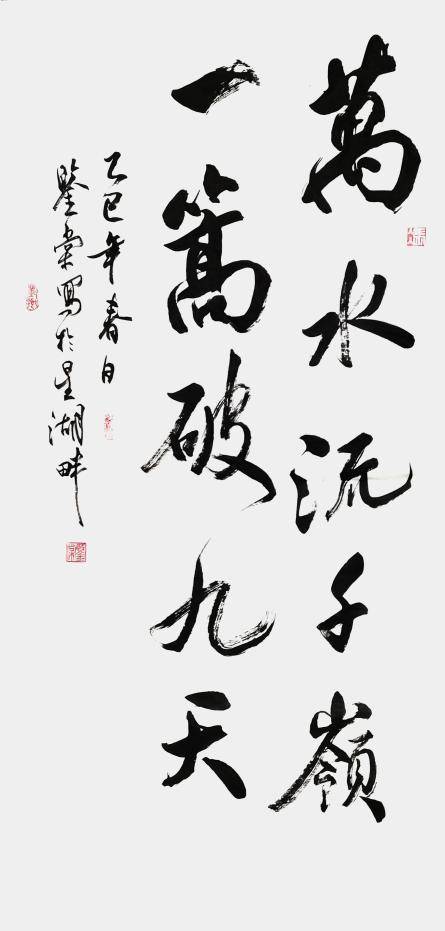 萬水流千嶺
一篙破九天
乙巳年春日
鑒棠寫於星湖畔